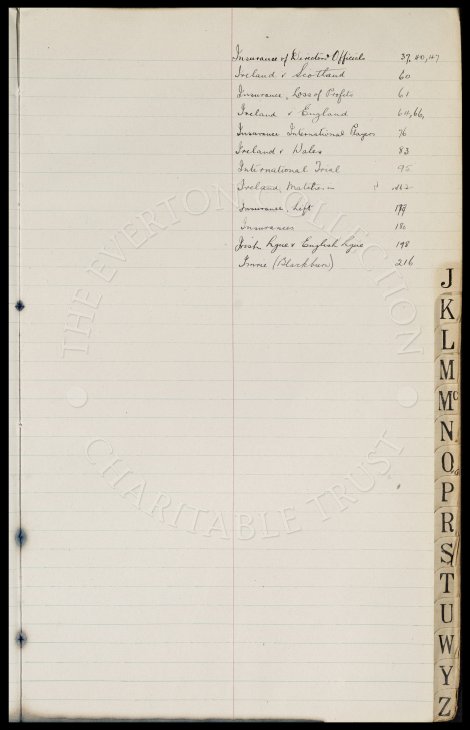 Insurance of Directors & Officials 37, 40, 47
Ireland v Scotland 60
Insurance, Loss of Profits 61
Ireland v England 64, 66,
Insurance International Players 76
Ireland v Wales 83
International Trial 95
Ireland, Matches in
Insurance, Lift 179
Insurances 180
Irish Lgue v English Lgue 198
(Blackburn) 216
J
K
L
M
Mc
N
O
P
R
S
T
U
W
Y
Z
THE EVERTON COLLECTION
CHARITABLE TRUST